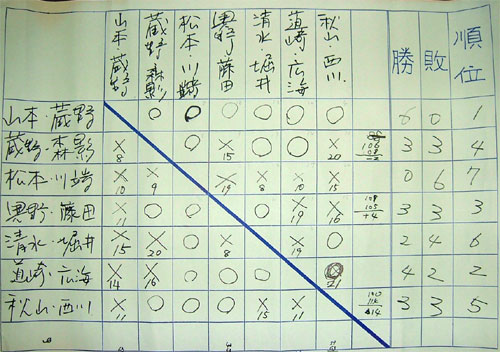 山本 蔵野
蔵野 森影
松本 川端
奥野 藤田
清水・堀井
道崎 広海
秋山・西川
勝 敗 順位
山本 蔵野 ○ ○ ○ ○ ○ ○ 6 0 1
蔵野・森影 ×8 ○ ×15 ○ ○ ×20 106 3 3 4
松本・川端 ×10 ×9 ×19 ×8 ×10 ×15 0 6 7
奥野・藤田 ×11 ○ ○ ○ ×19 ×16 109 105 +4 3 3 3
清水・堀井 ×15 ×20 ○ ×8 ×19 ○ 2 4 6
道崎・広海 ×14 ×16 ○ ○ ○ 21 4 2 2
秋山・西川 ×11 ○ ○ ○ ×15 ×11 14 3 3 5